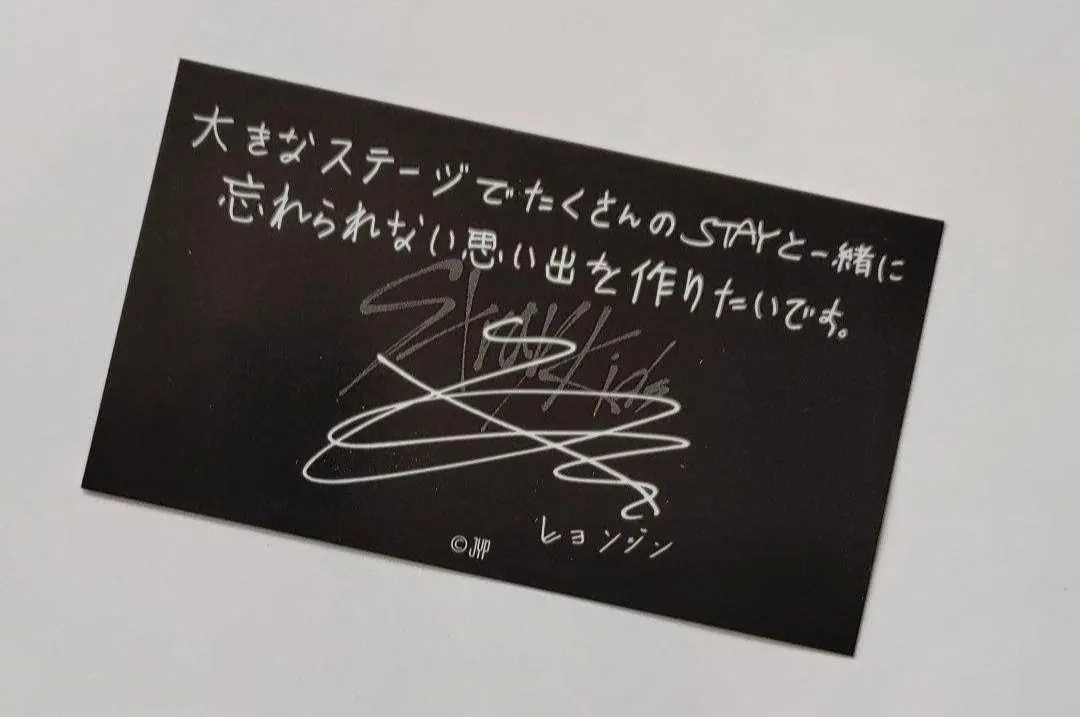 大きなステージでたくさんのSTAYと一緒に
忘れられない思い出を作りたいです。
Stray Kids
ヒョンジン
©JYP